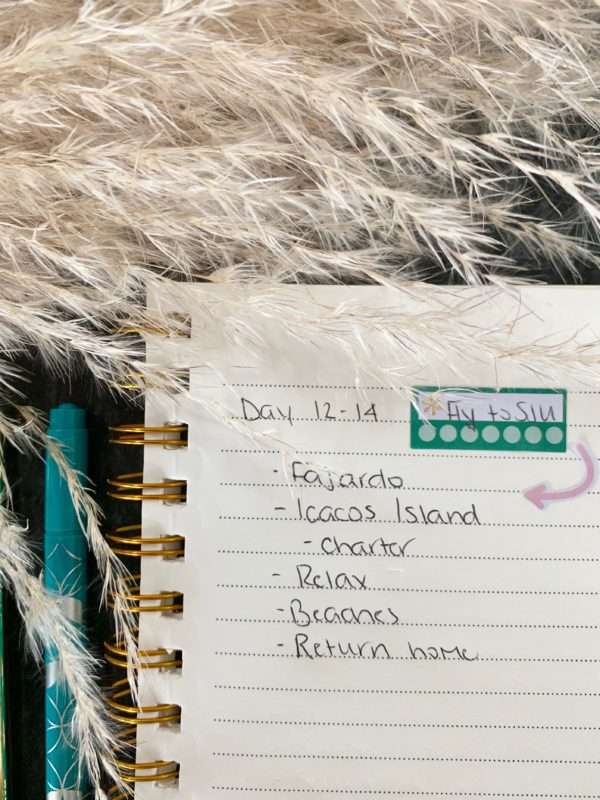 Day 12-14
* Fly to SJU
- Fajardo
- Icacos Island
- Charter
- Relax
- Beaches
- Return home